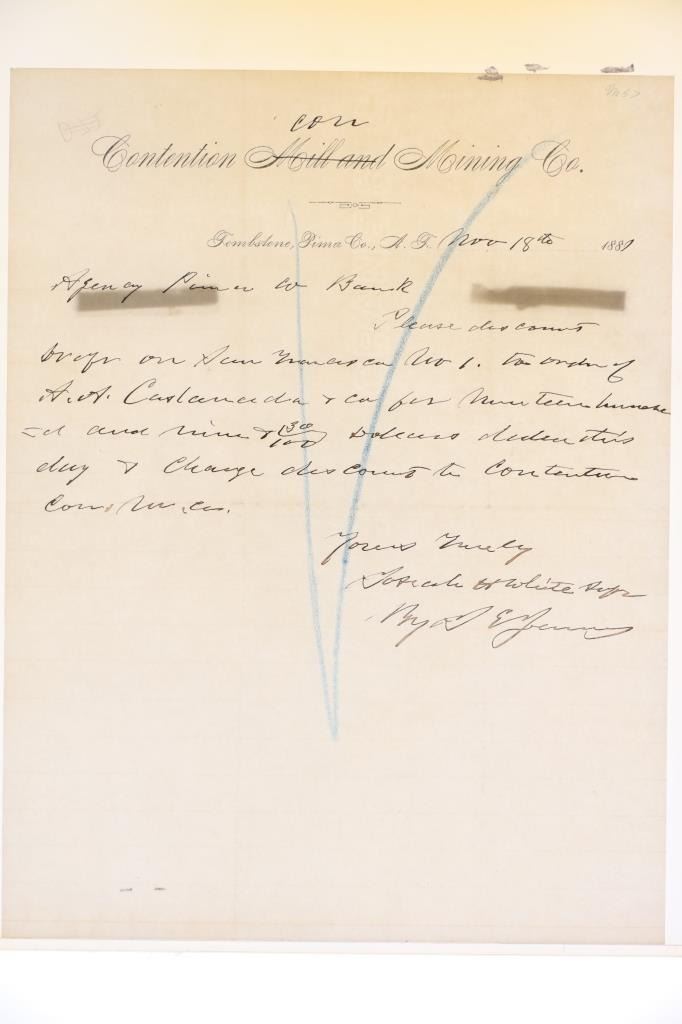 con
Contention Mill and Mining Co.
Tombstone, Pima Co., A. T. Nov 18th 1881
Agency Pima Co Bank
Please discount
Draft on San Francisco No 1. to order of
A. A. Castaneda & co for Nineteen hundre
=d and nine & 30/100 Dollars dated this
day & Charge discount to Contention
Con. M. Co.
Yours Truly
Josiah H White Supt
By S E